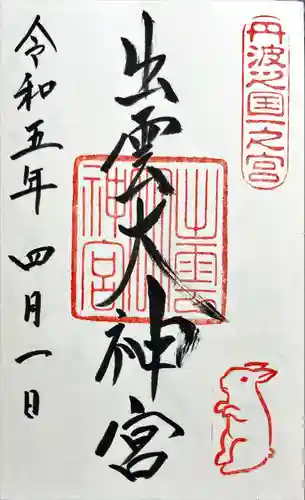 丹波之国一之宮
出雲大神宮
出雲大神宮
令和五年 四月一日